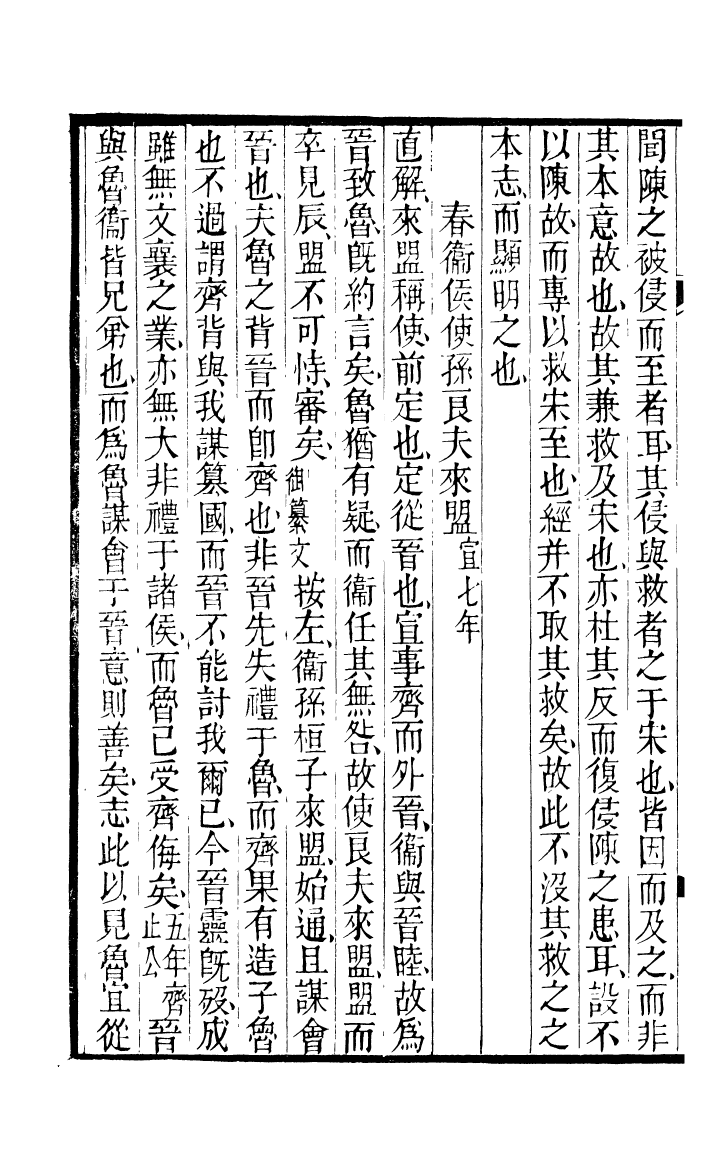 聞陳之被侵而至者耳、其侵與救者之于宋也、皆因而及之、而非
其本意故也、故其兼救及宋也、亦杜其反而復侵陳之患耳、設不
以陳故、而專以救宋至也、經并不取其救矣、故此不沒其救之之
本志、而顯明之也、
春衞侯使孫良夫來盟 宣七年
直解、來盟稱使、前定也、定從晉也、宣事齊而外晉、衞與晉睦、故爲
晉致魯、旣約言矣、魯猶有疑、而衞任其無咎、故使良夫來盟、盟而
卒見辰、盟不可恃、審矣、御纂文 按左、衞孫桓子來盟、始通、且謀會
晉也、夫魯之背晉而卽齊也、非晉先失禮于魯、而齊果有造子魯
也、不過謂齊背與我謀簒國、而晉不能討我爾已、今晉靈旣殁、成
雖無文襄之業、亦無大非禮于諸侯、而魯已受齊侮矣、五年齊止公 晉
與魯衞皆兄弟也、而爲魯謀會于晉、意則善矣、志此以見魯宣從